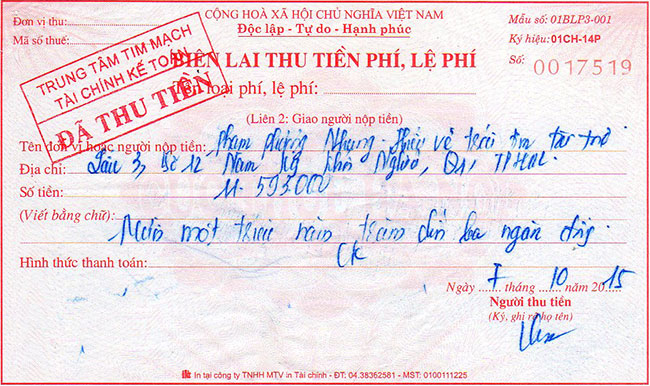 Đơn vị thu:
Mã số thuế:
CỘNG HOÀ XÃ HỘI CHỦ NGHĨA VIỆT NAM
Độc lập - Tự do - Hạnh phúc
Mẫu số: 01BLP3-001
Ký hiệu: 01CH-14P
Số: 0017519
TRUNG TÂM TIM MẠCH
TÀI CHÍNH KẾ TOÁN
ĐÃ THU TIỀN
BIÊN LAI THU TIỀN PHÍ, LỆ PHÍ
Tên loại phí, lệ phí:
(Liên 2: Giao người nộp tiền)
Tên đơn vị hoặc người nộp tiền: Phạm Phương Nhung - về trái tim tài trợ
Địa chỉ: Lầu 3, Số 12 Nam Kỳ Khởi Nghĩa, Q1, TPHCM
Số tiền: 11.593.000
(Viết bằng chữ):
Mười một triệu năm trăm ba ngàn đồng
Hình thức thanh toán: CK
Ngày 7 tháng 10 năm 2015
Người thu tiền
(Ký, ghi rõ họ tên)
In tại công ty TNHH MTV in Tài chính - ĐT: 04.38362581 - MST: 0100111225